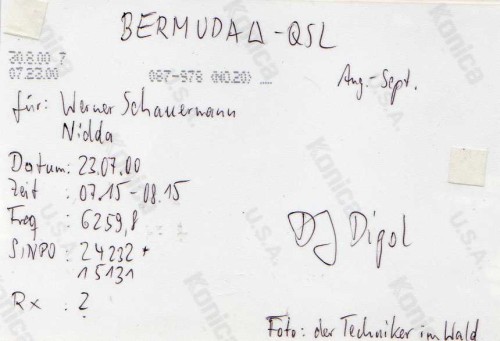 BERMUDA△-QSL
30.8.00 ?
07.23.00 087-978 <NO.20> ....
Aug.-Sept.
für: Werner Schauermann
Nidda
Datum: 23.07.00
Zeit : 07.15-08.15
Freq : 6259,8
SINPO : 24232 +
15131
DJ Digol
Rx : ?
Foto: der Techniker im Wald
Konica
U.S.A.